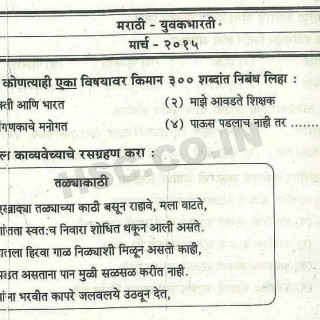 मराठी - युवकभारती
मार्च - २०१५
कोणत्याही एका विषयावर किमान ३०० शब्दांत निबंध लिहा :
आणि भारत
(२) माझे आवडते शिक्षक
मनोगत
(४) पाऊस पडलाच नाही तर .......
काव्यवेच्याचे रसग्रहण करा :
HSC.CO.IN
तळ्याकाठी
तळ्याच्या काठी बसून राहावे, मला वाटते,
स्वतःच निवारा शोधित थकून आली असते.
हिरवा गाळ निळ्याशी मिळून असतो काही,
असताना पान मुळी सळसळ करीत नाही.
भरवीत कापरे जलवलये उठवून देत,